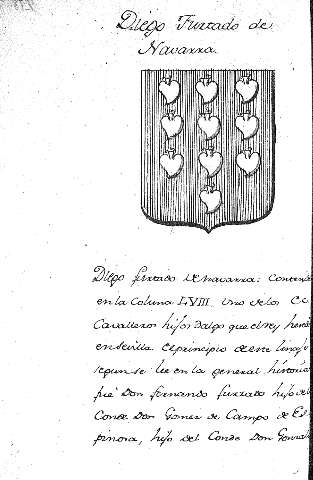 Diego Furtado de
Navarra.
Diego furtado de navarra: Conten
en la Coluna LVIII. Uno de los CC
Cavalleros hijos dalgo que el rey hered
en sevilla. el principio de este linaje
segun se lee en la general historia
fue Don fernando furtado hijo del
Conde Don Gomez de Campo de Es
pinosa, hijo del Conde Don Gonzal